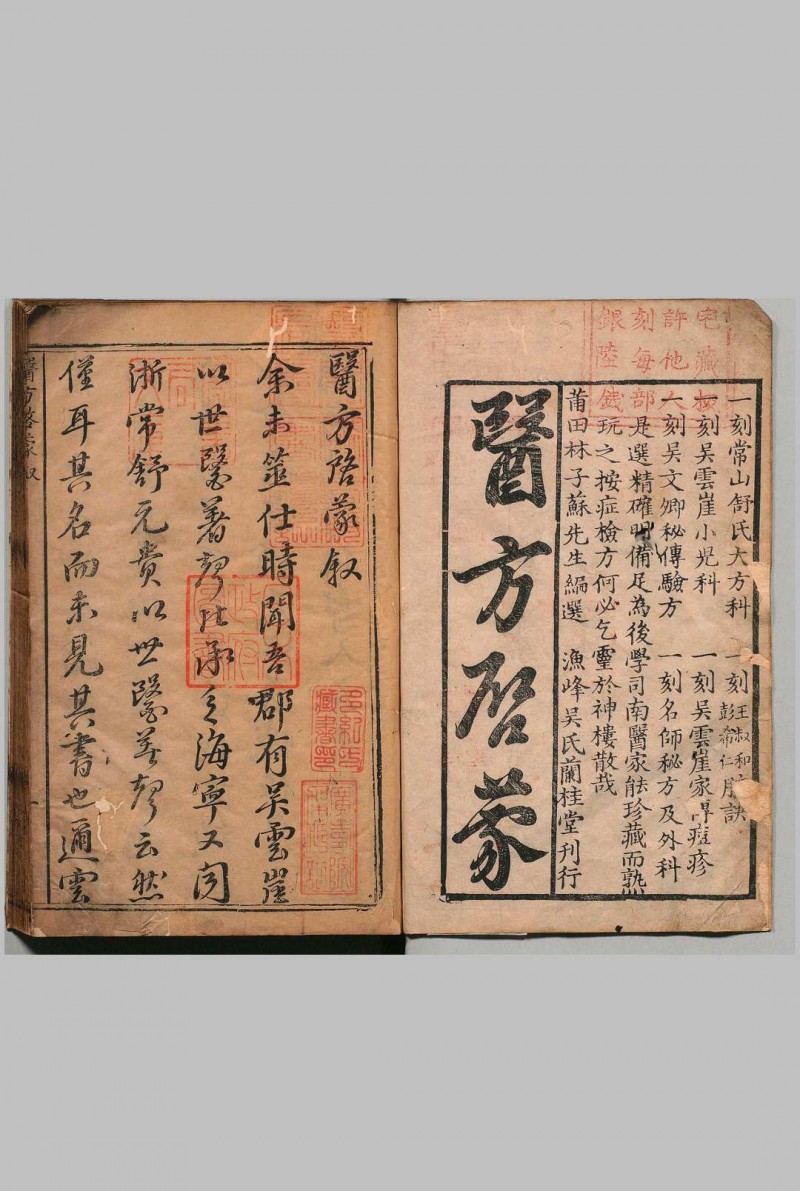 宅藏板
許他人
刻每部
銀陸錢
一刻常山舒氏大方科 一刻王叔和 彭希仁 訣
一刻吳雲崖小児科 一刻吳雲崖家 痘疹
一刻吳文卿秘傳驗方 一刻名師秘方及外科
是選精確明備足為後學司南醫家能珍藏而熟
玩之按症檢方何必乞靈於神樓散哉
莆田林子蘇先生編選 漁峰吳氏蘭桂堂刊行
醫方啓蒙
醫方啓蒙叙
余未筮仕時聞吾郡有吳雲崖
以世醫著聲 海寧又聞
浙常舒元貴以世醫著聲云然
僅耳其名而未見其書也邇雲
醫方啓蒙叙
藏書印